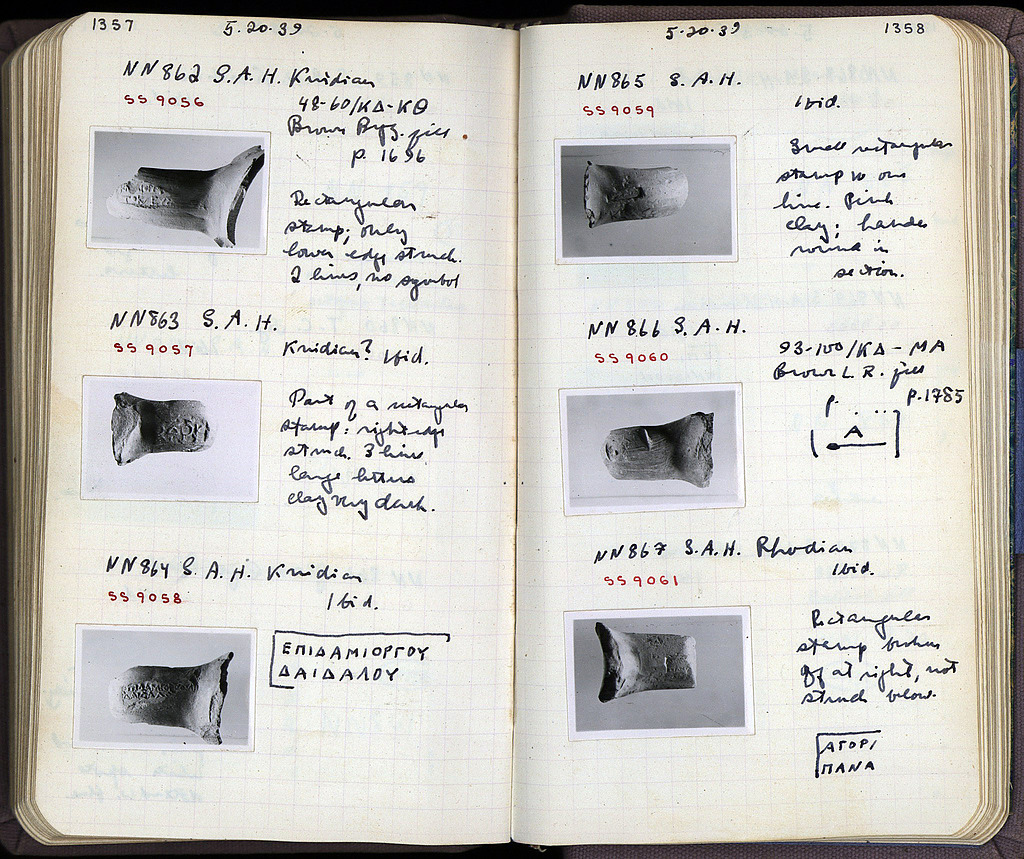 1357
5-20-39
NN862 S.A.H. Knidian
SS 9056
48-60/ΚΔ-ΚΘ
Brown Byz. fill
p. 1696
Rectangular
stamp; only
lower edge struck.
2 lines, no symbol
NN863 S.A.H.
SS 9057
Knidian? Ibid.
Part of a rectangular
stamp: right edge
struck. 3 lines
large letters
clay very dark.
NN864 S.A.H. Knidian
SS 9058
Ibid.
ΕΠΙΔΑΜΙΟΡΓΟΥ
ΔΑΙΔΑΛΟΥ
5-20-39
1358
NN865 S.A.H.
SS 9059
Ibid.
Small rectangular
stamp w one
line. Pink
clay; handle
round in
section.
NN866 S.A.H.
SS 9060
93-100/ΚΔ-ΜΑ
Brown L.R. fill
p. 1785
Α
NN867 S.A.H. Rhodian
SS 9061
Ibid.
Rectangular
stamp broken
off at right, not
struck below.
ΑΓΟΡΙ
ΠΑΝΑ